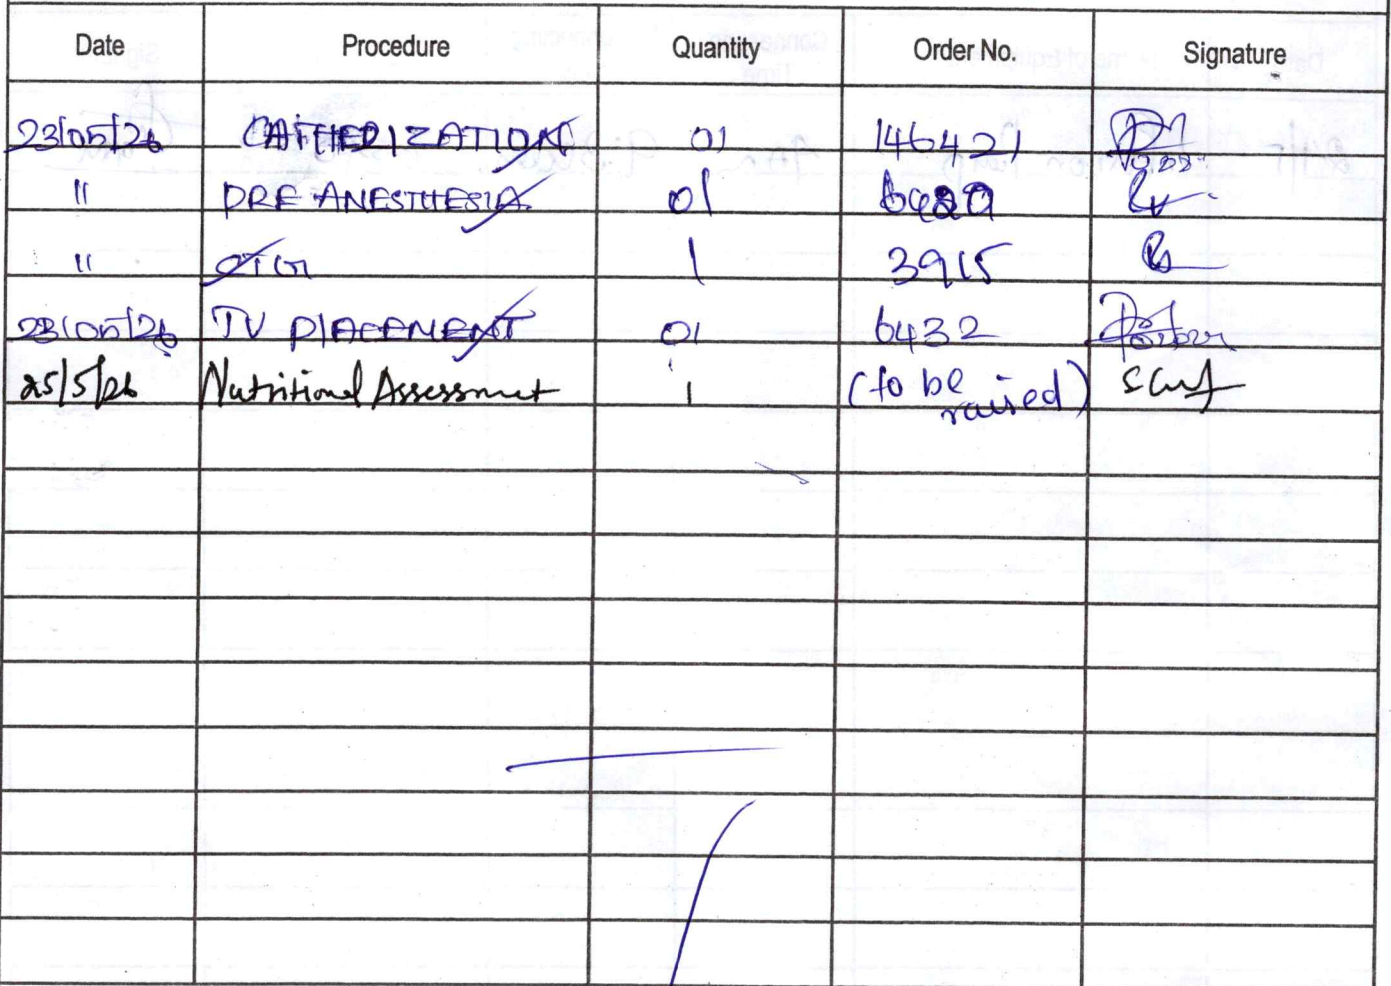 Date Procedure Quantity Order No. Signature
23/05/26 CATHERIZATION 01 146421
" PRE ANESTHESIA 01
" CTG 1 3915
23/05/26 IV PLACEMENT 01 6432
25/5/26 Nutritional Assessment 1 (to be raised)